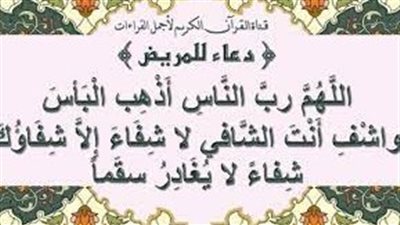 قناة القرآن الكريم لأجمل القراءات
﴿ دعاء للمريض ﴾
اللَّهُمَّ ربَّ النَّاسِ أَذْهِب الْبَأسَ
واشْفِ أَنْتَ الشَّافي لا شِفَاءَ إِلاَّ شِفَاؤُكَ
شِفاءً لا يُغَادِرُ سقَماً